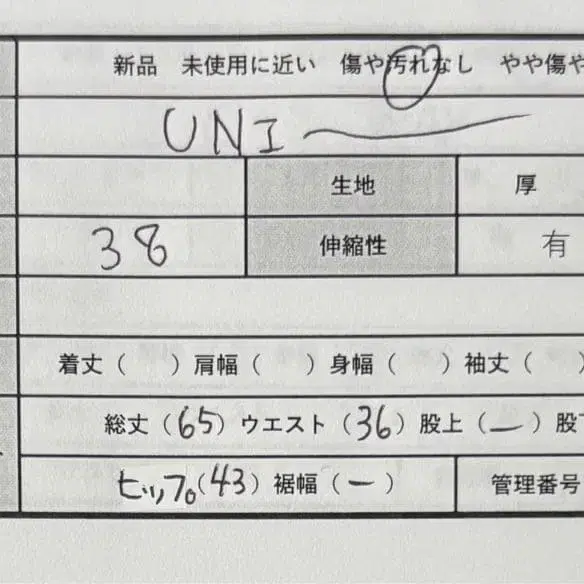 新品 未使用に近い 傷や汚れなし やや傷や
UNI
生地 厚
38 伸縮性 有
着丈( ) 肩幅( ) 身幅( ) 袖丈(
総丈(65) ウエスト(36) 股上(—) 股下
ヒップ(43) 裾幅(—) 管理番号